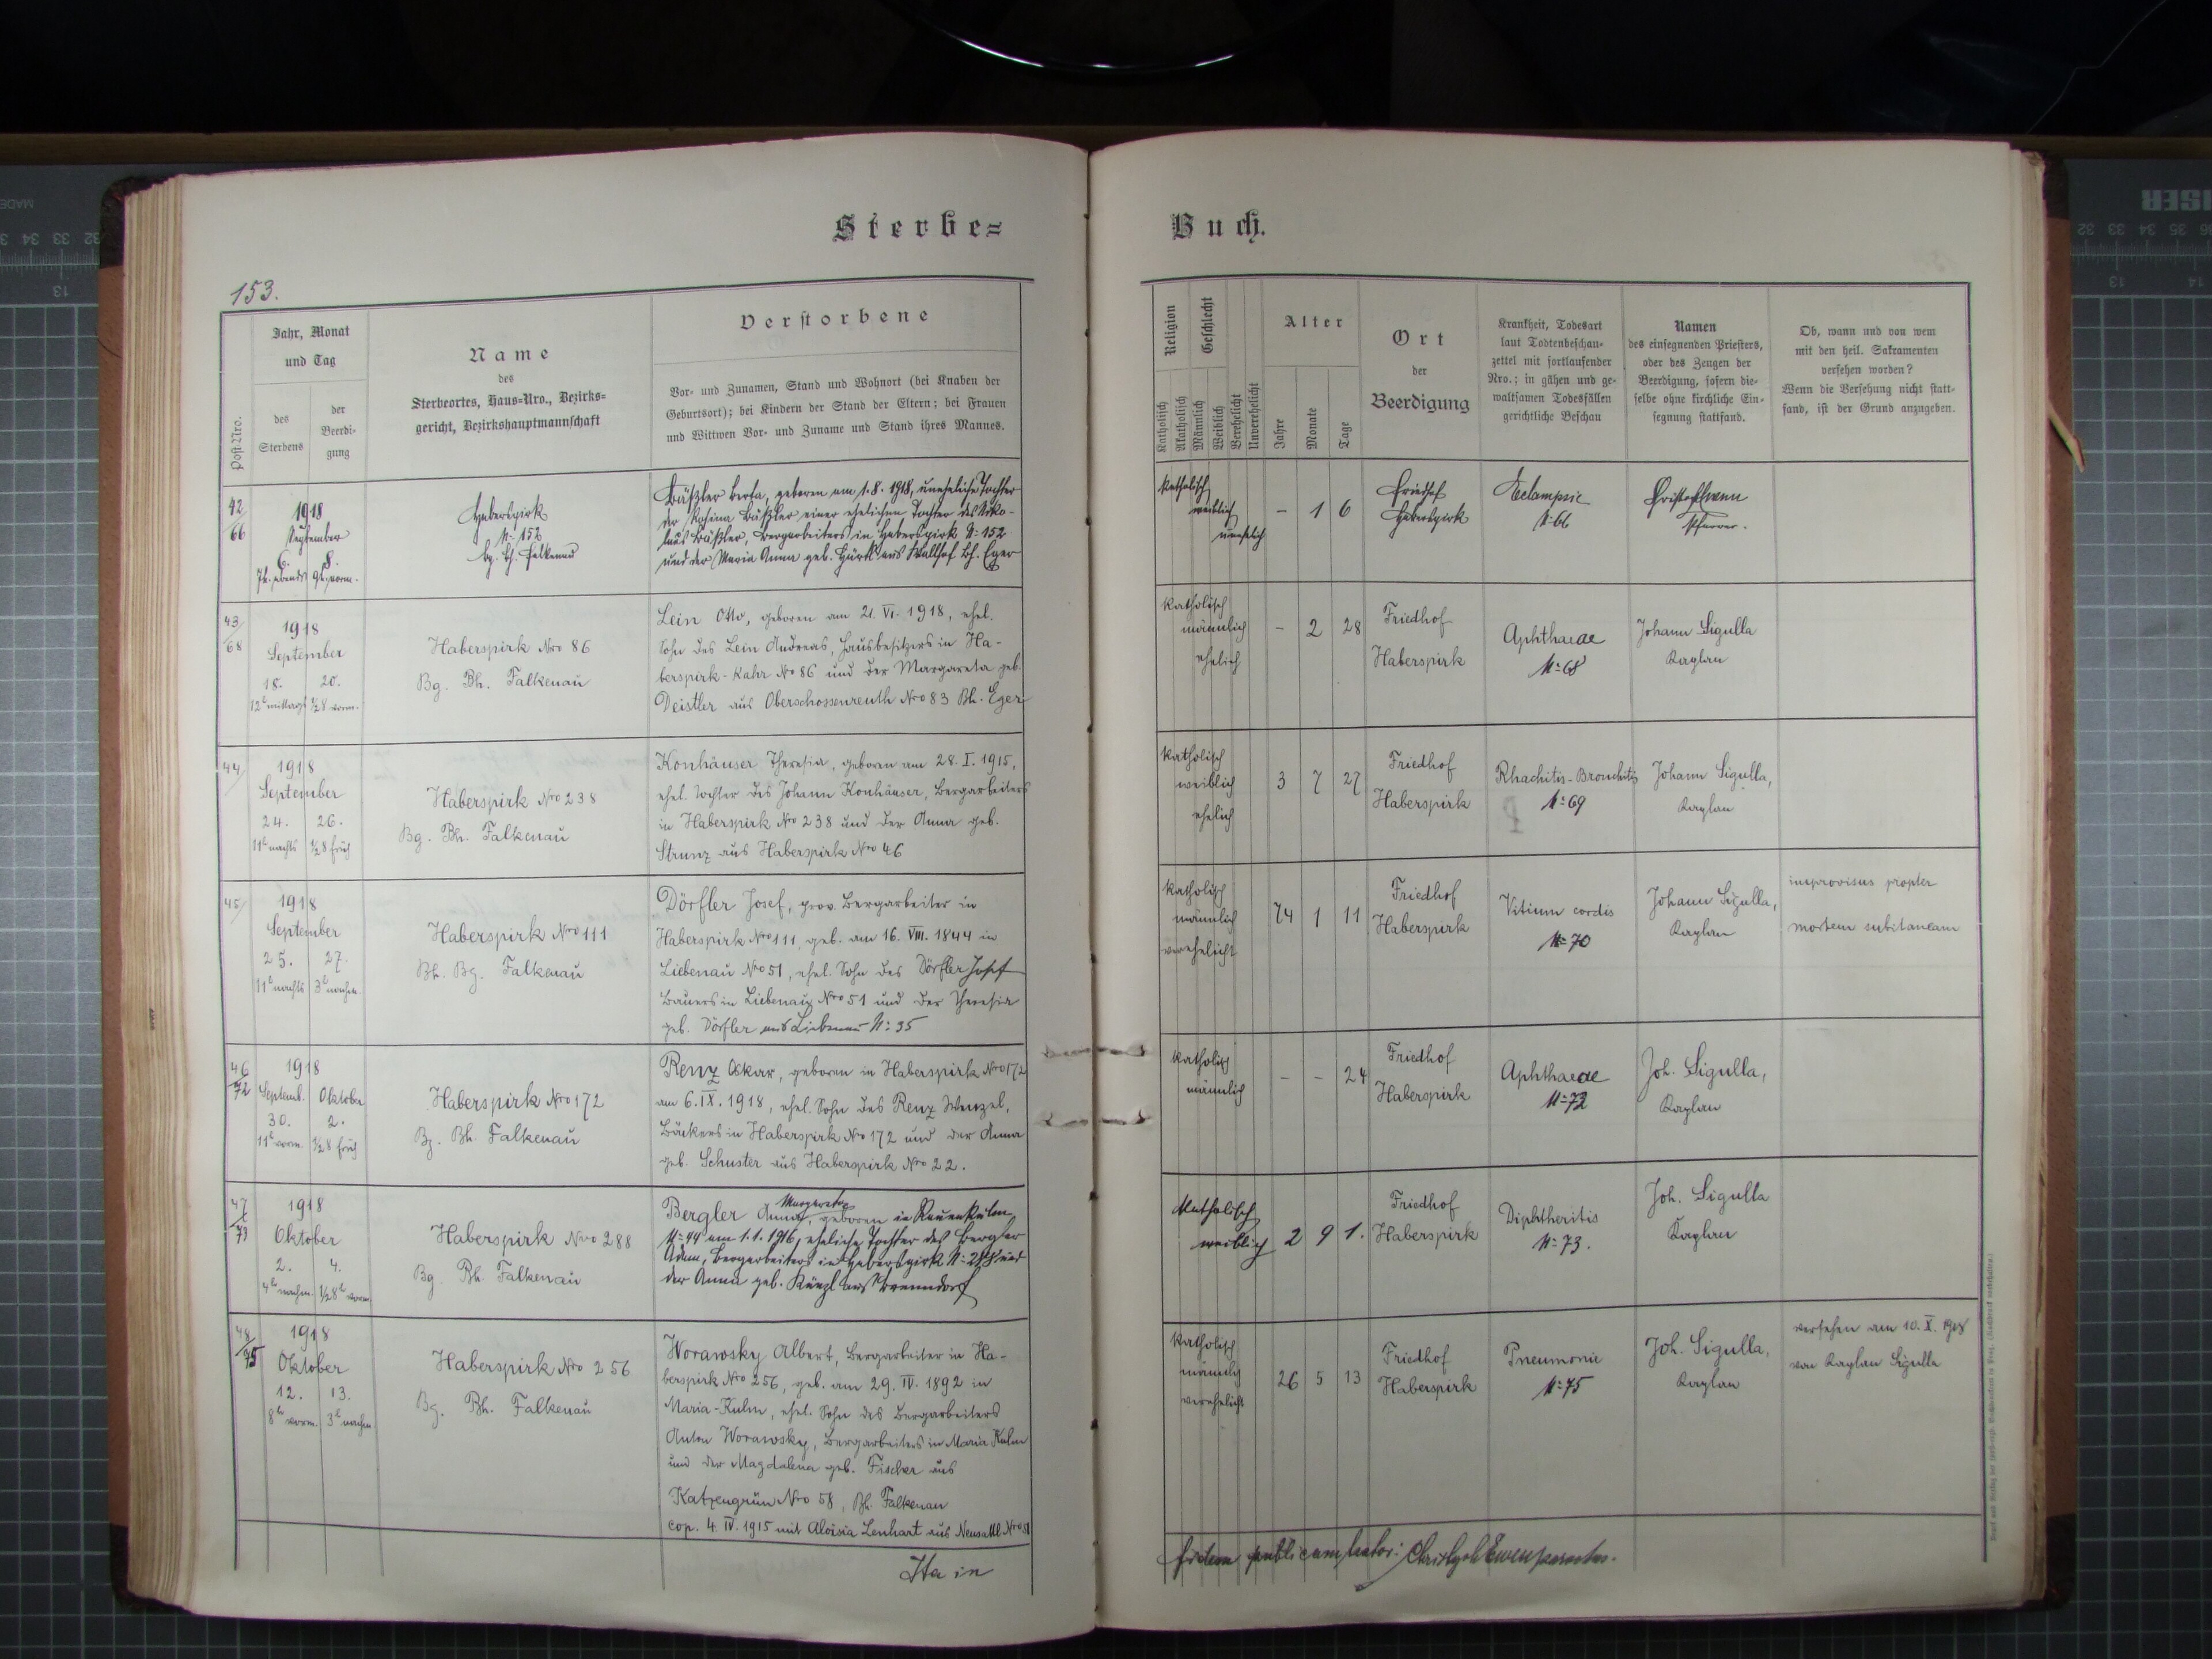 Sterbe=
Buch.
153.
Post-Nro.
Jahr, Monat
und Tag
des
Sterbens
der
Beerdi-
gung
Name
des
Sterbeortes, Haus=Nro., Bezirks=
gericht, Bezirkshauptmannschaft
Verstorbene
Vor- und Zunamen, Stand und Wohnort (bei Knaben der
Geburtsort); bei Kindern der Stand der Eltern; bei Frauen
und Wittwen Vor- und Zuname und Stand ihres Mannes.
Religion
Katholisch
Akatholisch
Geschlecht
Männlich
Weiblich
Verehelicht
Unverehelicht
Alter
Jahre
Monate
Tage
Ort
der
Beerdigung
Krankheit, Todesart
laut Todtenbeschau-
zettel mit fortlaufender
Nro.; in gähen und ge-
waltsamen Todesfällen
gerichtliche Beschau
Namen
des einsegnenden Priesters,
oder des Zeugen der
Beerdigung, sofern die-
selbe ohne kirchliche Ein-
segnung stattfand.
Ob, wann und von wem
mit den heil. Sakramenten
versehen worden?
Wenn die Versehung nicht statt-
fand, ist der Grund anzugeben.
42
66
1918
September
6. 8.
7h. abends 9h. vorm.
Haberspirk
N: 152
bg. bh. Falkenau
Bäßler Berta, geboren am 1.8.1918, uneheliche Tochter
der Rosina Bäßler einer ehelichen Tochter des Niko-
laus Bäßler, Bergarbeiters in Haberspirk N: 152
und der Maria Anna geb. aus Wallhof Bh. Eger
katholisch
weiblich
unehelich
- 1 6
Friedhof
Haberspirk
Eclampsie
N: 66
Pfarrer.
43/
68
1918
September
18. 20.
12h mittags ½8 vorm.
Haberspirk Nro 86
Bg. Bh. Falkenau
Lein Otto, geboren am 21. VI. 1918, ehel.
Sohn des Lein Andreas, Hausbesitzers in Ha-
berspirk-Kahr No 86 und der Margareta geb.
Deistler aus Oberschossenreuth Nro 83 Bh. Eger
katholisch
männlich
ehelich
- 2 28
Friedhof
Haberspirk
Aphthaeae
N: 68
Johann Sigulla
Kaplan
44/
1918
September
24. 26.
11h nachts ½8 früh
Haberspirk Nro 238
Bg. Bh. Falkenau
Konhäuser Theresia, geboren am 28. I. 1915,
ehel. Tochter des Johann Konhäuser, Bergarbeiters
in Haberspirk Nro 238 und der Anna geb.
Strunz aus Haberspirk Nro 46
katholisch
weiblich
ehelich
3 7 27
Friedhof
Haberspirk
Rhachitis-Bronchitis
N: 69
Johann Sigulla,
Kaplan
45/
1918
September
25. 27.
11h nachts 3h nachm.
Haberspirk Nro 111
Bh. Bg. Falkenau
Dörfler Josef, prov. Bergarbeiter in
Haberspirk Nro 111, geb. am 16. VIII. 1844 in
Liebenau Nro 51, ehel. Sohn des Dörfler Josef
Bauers in Liebenau Nro 51 und der Theresia
geb. Dörfler aus Liebenau N: 35
katholisch
männlich
verehelicht
74 1 11
Friedhof
Haberspirk
Vitium cordis
N: 70
Johann Sigulla,
Kaplan
improvisus propter
mortem subitaneam
46
72
1918
Septemb. Oktober
30. 2.
11h vorm. ½8 früh
Haberspirk Nro 172
Bg. Bh. Falkenau
Renz Oskar, geboren in Haberspirk Nro 172
am 6. IX. 1918, ehel. Sohn des Renz Wenzel,
Bäckers in Haberspirk No 172 und der Anna
geb. Schuster aus Haberspirk Nro 22.
katholisch
männlich
- - 24
Friedhof
Haberspirk
Aphthaeae
N: 72
Joh. Sigulla,
Kaplan
47
73
1918
Oktober
2. 4.
4h nachm. ½8h vorm.
Haberspirk Nro 288
Bg. Bh. Falkenau
Margareta
Bergler Anna, geboren in
N: 44 am 1.1.1916, eheliche Tochter des Bergler
Adam, Bergarbeiters in Haberspirk N: 288 und
der Anna geb. Künzl aus
Katholisch
weiblich
2 9 1.
Friedhof
Haberspirk
Diphtheritis
N: 73.
Joh. Sigulla
Kaplan
48/
75
1918
Oktober
12. 13.
8h vorm. 3h nachm.
Haberspirk Nro 256
Bg. Bh. Falkenau
Worawsky Albert, Bergarbeiter in Ha-
berspirk Nro 256, geb. am 29. IV. 1892 in
Maria-Kulm, ehel. Sohn des Bergarbeiters
Anton Worawsky, Bergarbeiters in Maria Kulm
und der Magdalena geb. Fischer aus
Katzengrün Nro 58, Bh. Falkenau
cop. 4. IV. 1915 mit Aloisia Lenhart aus Neusattl Nro 51
katholisch
männlich
verehelicht
26 5 13
Friedhof
Haberspirk
Pneumonie
N: 75
Joh. Sigulla,
Kaplan
versehen am 10. X. 1918
von Kaplan Sigulla
Ita in
fidem publicam testor: